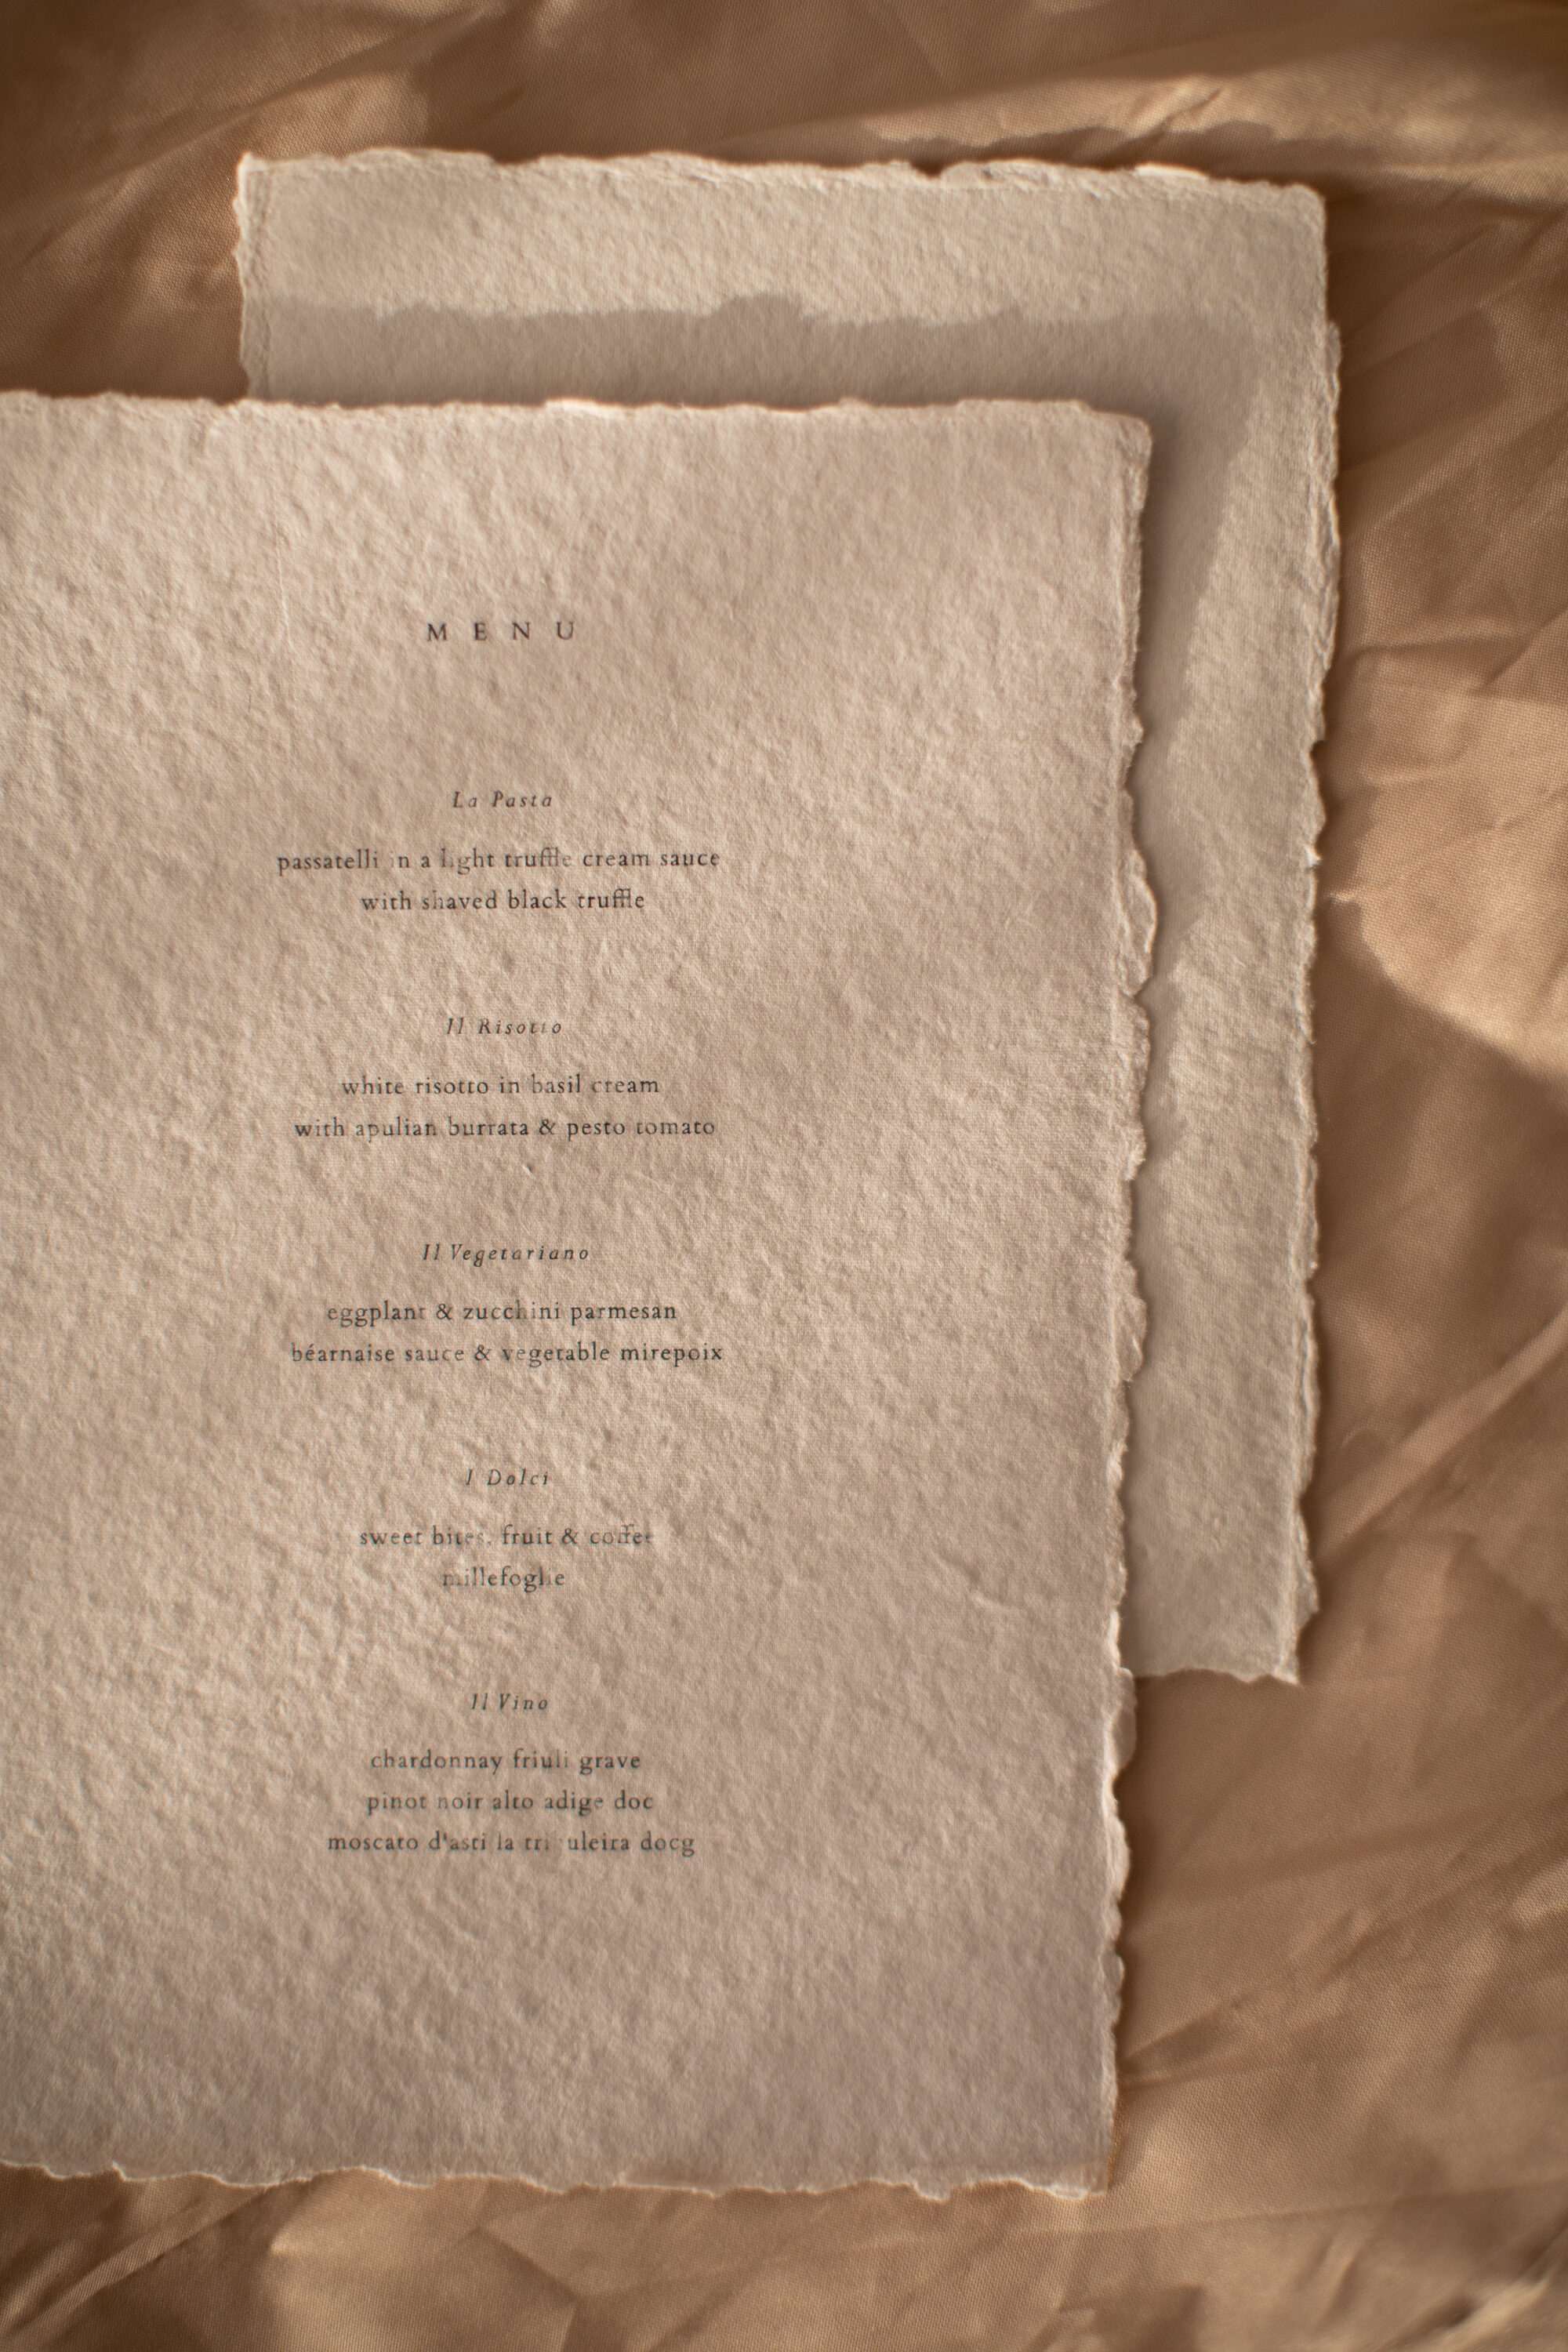 MENU
La Pasta
passatelli in a light truffle cream sauce
with shaved black truffle
Il Risotto
white risotto in basil cream
with apulian burrata & pesto tomato
Il Vegetariano
eggplant & zucchini parmesan
béarnaise sauce & vegetable mirepoix
I Dolci
sweet bites, fruit & coffee
millefoglie
Il Vino
chardonnay friuli grave
pinot noir alto adige doc
moscato d'asti la docg